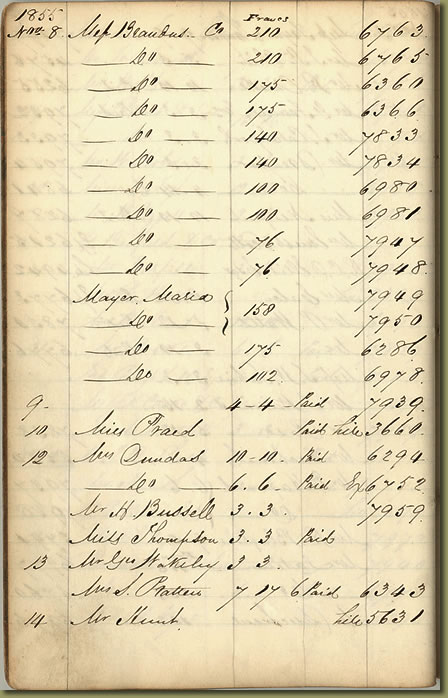 1855 Francs
Novr 8. Mesr Brandus Co 210 6763
Do 210 6765
Do 175 6360
Do 175 6366
Do 140 7833
Do 140 7834
Do 100 6980
Do 100 6981
Do 76 7947
Do 76 7948
Mayer. Maria 7949
Do 158 7950
Do 175 6286
Do 112. 6978
9- 4-4- Paid 7939
10 Miss Praed Paid 3660
12 Mrs Dundas 10-10. Paid 6294
Do 6.6. Paid Ex 6752
Mr H Bussell 3.3. 7959
Miss Thompson 3.3 Paid
13 Mr Geo Wakeley 3 3.
Mrs S. 7 17 6 Paid 6343
14 Mr Hunt. 5631